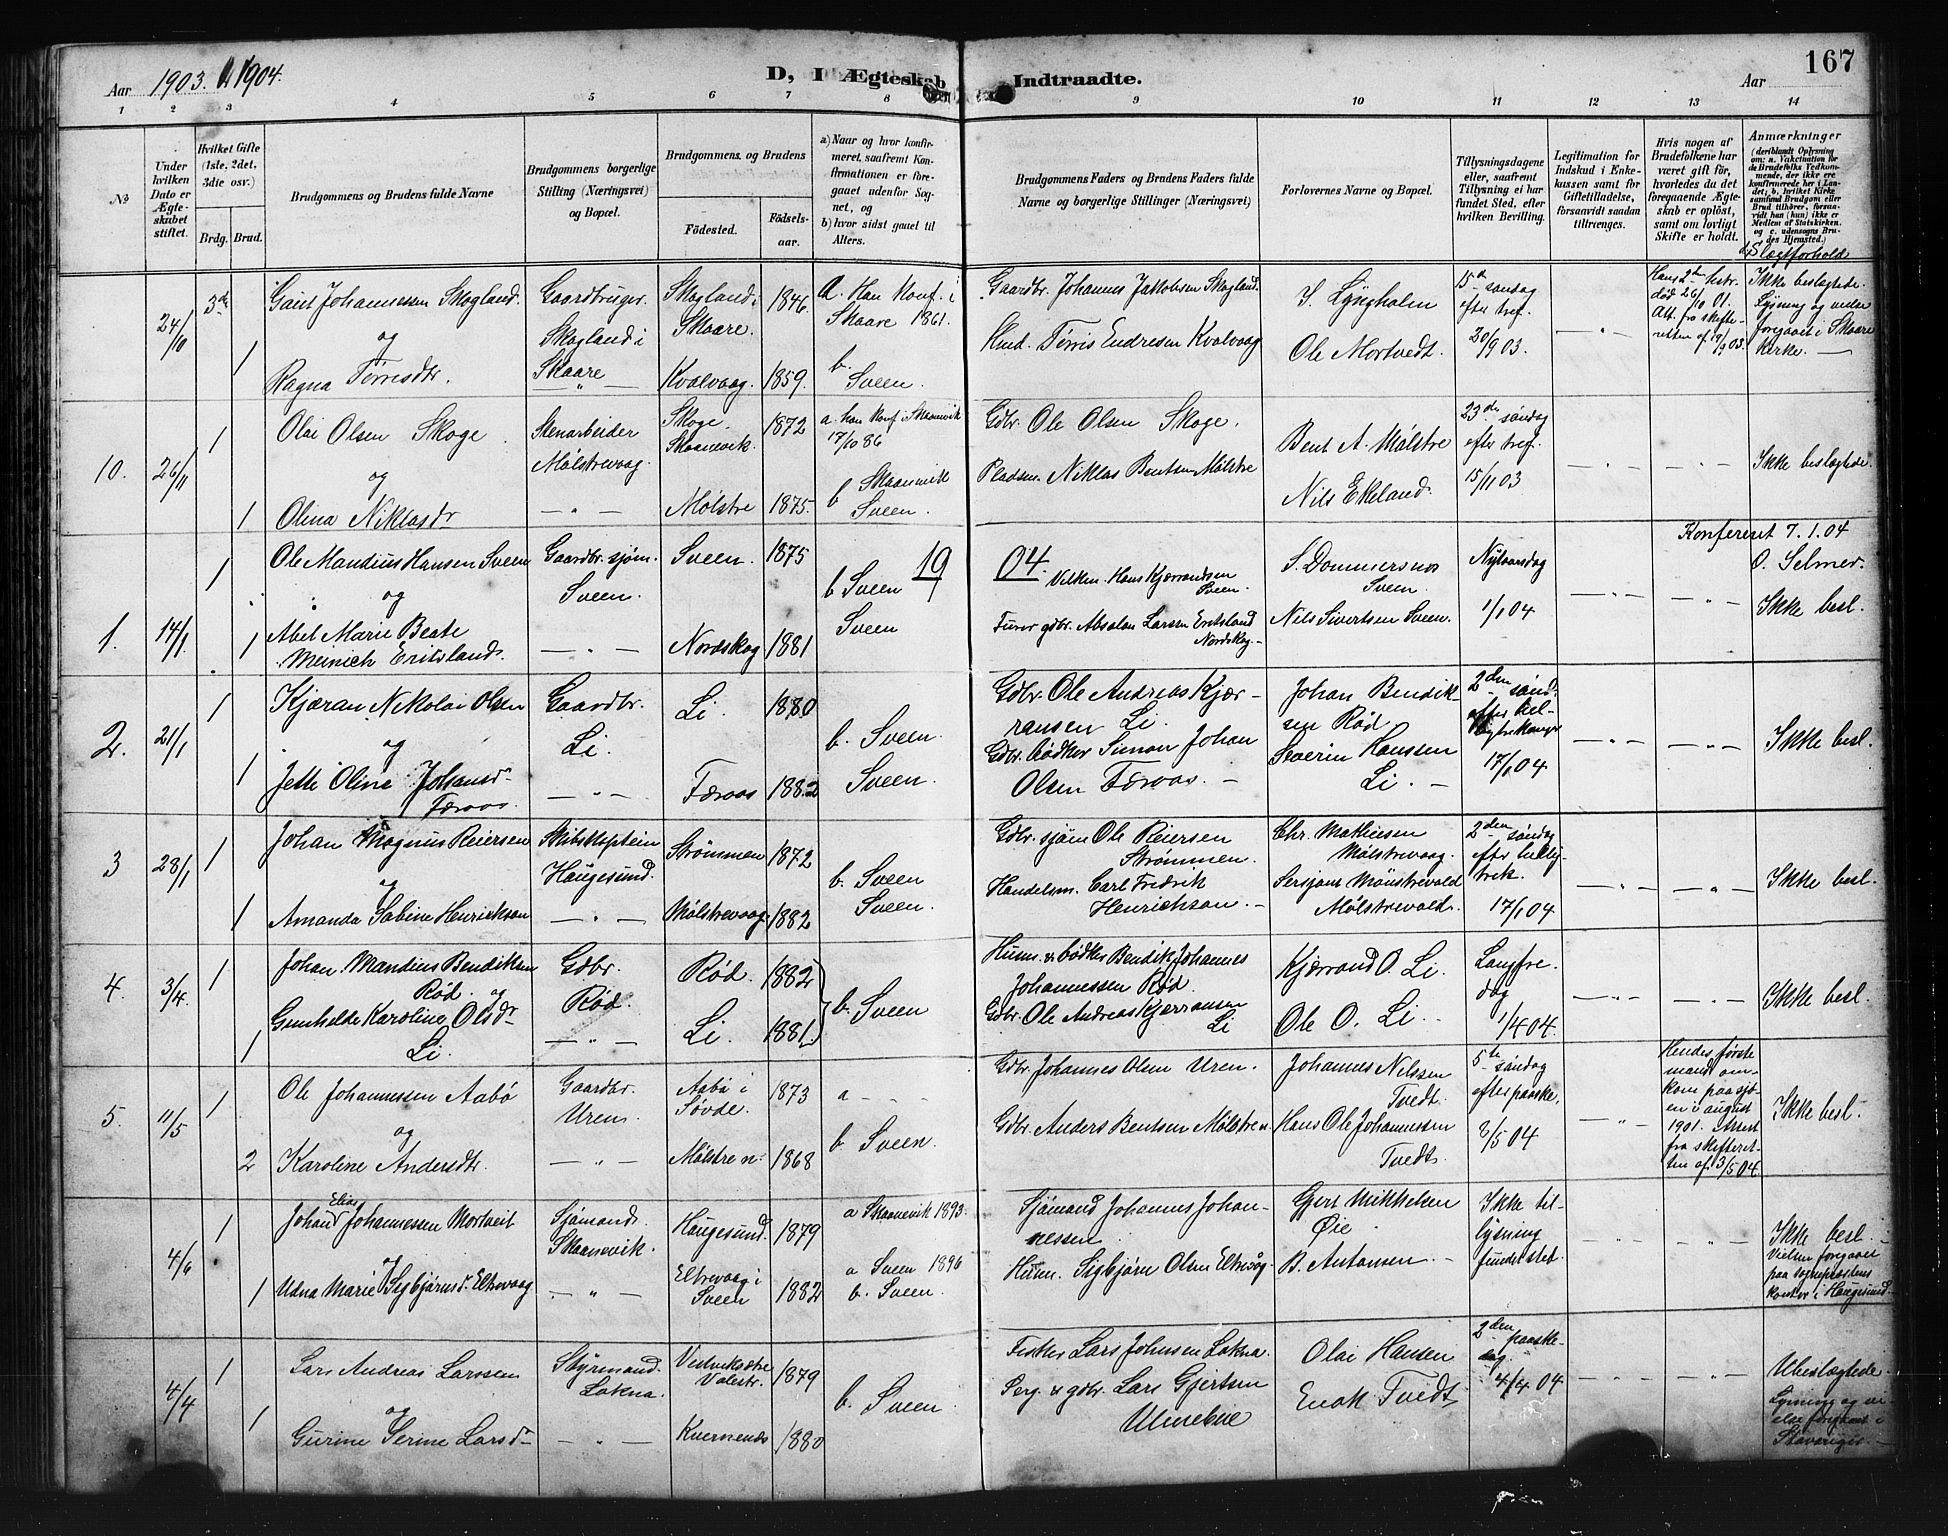 Aar 1903. 1904.
D, I Ægteskab Indtraadte.
Aar
167
1 2 3 4 5 6 7 8 9 10 11 12 13 14
№
Under hvilken Dato er Ægteskabet stiftet.
Hvilket Gifte (1ste, 2det, 3die osv.)
Brdg. Brud.
Brudgommens og Brudens fulde Navne
Brudgommens borgerlige Stilling (Næringsvei) og Bopæl.
Brudgommens og Brudens
Fødested.
Fødselsaar.
a) Naar og hvor konfirmeret, saafremt Konfirmationen er foregaaet udenfor Sognet, og
b) hvor sidst gaaet til Alters.
Brudgommens Faders og Brudens Faders fulde Navne og borgerlige Stillinger (Næringsvei)
Forlovernes Navne og Bopæl.
Tillysningsdagene eller, saafremt Tillysning ei har fundet Sted, efter hvilken Bevilling.
Legitimation for Indskud i Enkekassen samt for Giftetilladelse, forsaavidt saadan tiltrænges.
Hvis nogen af Brudefolkene har været gift før, hvorledes da det foregaaende Ægteskab er opløst, samt om lovligt Skifte er holdt.
Anmærkninger (deriblandt Oplysning om: a. Vakcination for de Brudefolks Vedkommende, der ikke ere konfirmerede her i Landet; b. hvilket Kirkesamfund Brudgom eller Brud tilhører, forsaavidt han (hun) ikke er Medlem af Statskirken, og c. udensogns Brudes Hjemsted.)
d. Slegtforhold
24/10 3die Gaut Johannessen Skogland. Gaardbruger. Skogland i Skaare. 1846. a. Han konf. i Skaare 1861. Gaardbr. Johannes Jakobsen Skogland. S. Lyngholm 15de søndag efter tref. 20/9 03. Hans 2den hustr. død 26/10 01. Att. fra skifteretten af 19/9 03. Ikke beslegtede. Lysning og vielse foregaaet i Skaare Kirke.
og
1 Ragna Tørresdtr. Skogland i Skaare Kvalvaag. 1859. b. Sveen. Hmd. Tørris Endresen Kvalvaag Ole Mortvedt.
10. 26/11 1 Olai Olsen Skoge Stenarbeider Mølstrevaag. Skoge. Skaanevik. 1872 a. han konf. i Skaanevik 17/10 86 Gdbr. Ole Olsen Skoge. Bent A. Mølstre 23de søndag efter tref. 15/11 03 Ikke beslegtede.
og
1 Olina Niklasdr Mølstre 1875. b Skaanevik Sveen. Pladsm. Niklas Bentsen Mølstre Nils Ekeland.
1904.
Konfereret 7.1.04
O. Selmer.
1. 14/1 1 Ole Mandius Hansen Sveen Gaardbr. sjøm. Sveen. Sveen. 1875 b Sveen Hans Kjærrandsen Sveen. S. Dommersnes Sveen. Nytaarsdag 1/1 04 Ikke besl.
og
1 Abel Marie Beate Meinich Eritsland. Nordskog 1881 Sveen Furer gdbr. Absalon Larsen Eritsland Nordskog Nils Sivertsen Sveen.
2. 21/1 1 Kjæran Nikolai Olsen Gaardbr. Li. Li. 1880 b. Sveen. Gdbr. Ole Andreas Kjærransen Li. Johan Bendiksen Rød 2den sønd. efter hel. 17/1 04 Ikke besl.
og
1 Jette Oline Johansdr Færaas. Færaas 1882 Sveen. Gdbr. bødker Simon Johan Olsen Færaas. Severin Hanssen Li.
3 28/1 1 Johan Magnus Reiersen Skibskaptein Haugesund. Strømmen 1872 b. Sveen Gdbr. sjøm Ole Reiersen Strømmen. Chr. Mathiesen Mølstrevaag. 2den søndag efter hellig trek. 17/1 04 Ikke besl.
og
1 Amanda Sabine Henrickson Mølstrevaag 1882 Sveen. Handelsm. Carl Fredrik Henrichson. Sersjant Mønstrevold Mølstrevold.
4. 3/4 1 Johan Mandius Bendiksen Rød og Gdbr. Rød. Rød. 1882 b. Sveen Husm. & bødker Bendik Johannes Johannessen Rød. Kjærrand O. Li. Langfredag 1/4 04. Ikke besl.
1 Gunhilde Karoline Olsdr Li. Li. 1881. Gdbr. Ole Andreas Kjærransen Li Ole O. Li.
5. 11/5 1 Ole Johannessen Aabø Gaardbr. Uren. Aabø i Søvde. 1873 a Gdbr. Johannes Olsen Uren. Johannes Nilssen Tvedt. 5te søndag efter paaske. 8/5 04 Hendes første mand omkom paa sjøen i august 1901. Attest fra skifteretten af 3/5 04. Ikke besl.
og
2 Karoline Andersdtr. Mølstre n. 1868 b. Sveen. Gdbr. Anders Bentsen Mølstre n. Hans Ole Johannessen Tvedt.
4/6 1 Johan Elias Johannessen Mortveit Sjømand. Skaanevik. Haugesund. 1879 a Skaanevik 1893. Sjømand Johannes Johannessen. Gjert Mikkelsen Øie Ikke tillysning fundet sted Ikke besl. Vielsen foregaaet paa sogneprestens kontor i Haugesund.
og
1 Udna Marie Sigbjørnsd. Eltrevaag Eltrevaag i Sveen 1882 a Sveen 1896 b. Sveen. Husm. Sigbjørn Olsen Eltrevåg. B. Antonsen.
4/4 1 Lars Andreas Larssen Styrmand. Lokna. Vestviksætre Valestr. 1879 b. Sveen Fisker Lars Johnsen Lokna. Olai Hansen 2den paaskedag. 4/4 04 Ubeslægtede Lysning og vielse foregaaet i Stavanger.
og
1 Gurine Serine Larsdr Kvernenes 1880 Serg. & gdbr. Lars Gjertsen Ulvebne Enok Tvedt